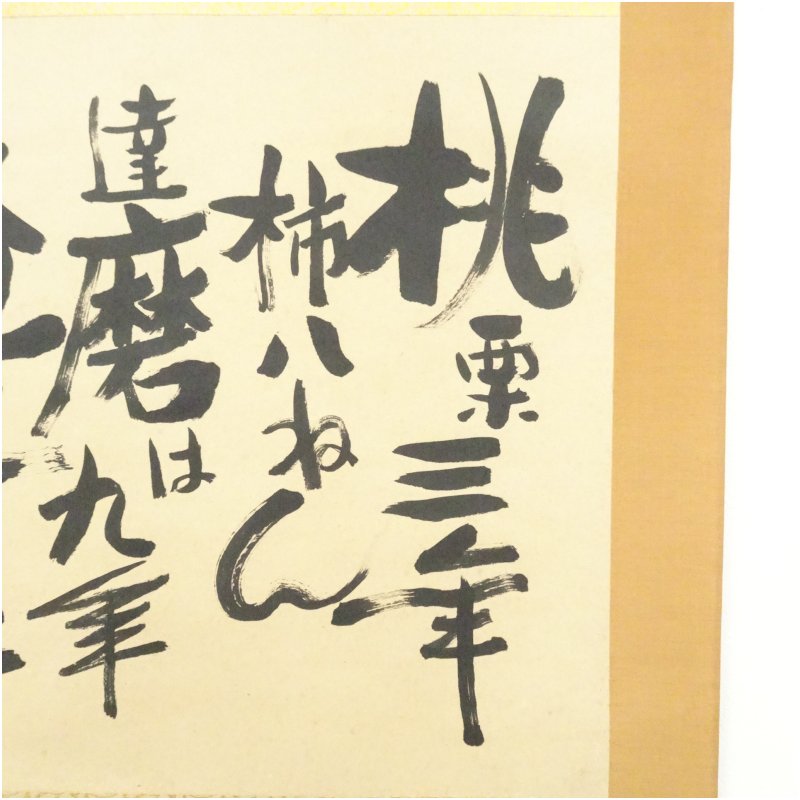 桃栗三年
柿八ねん
達磨は九年